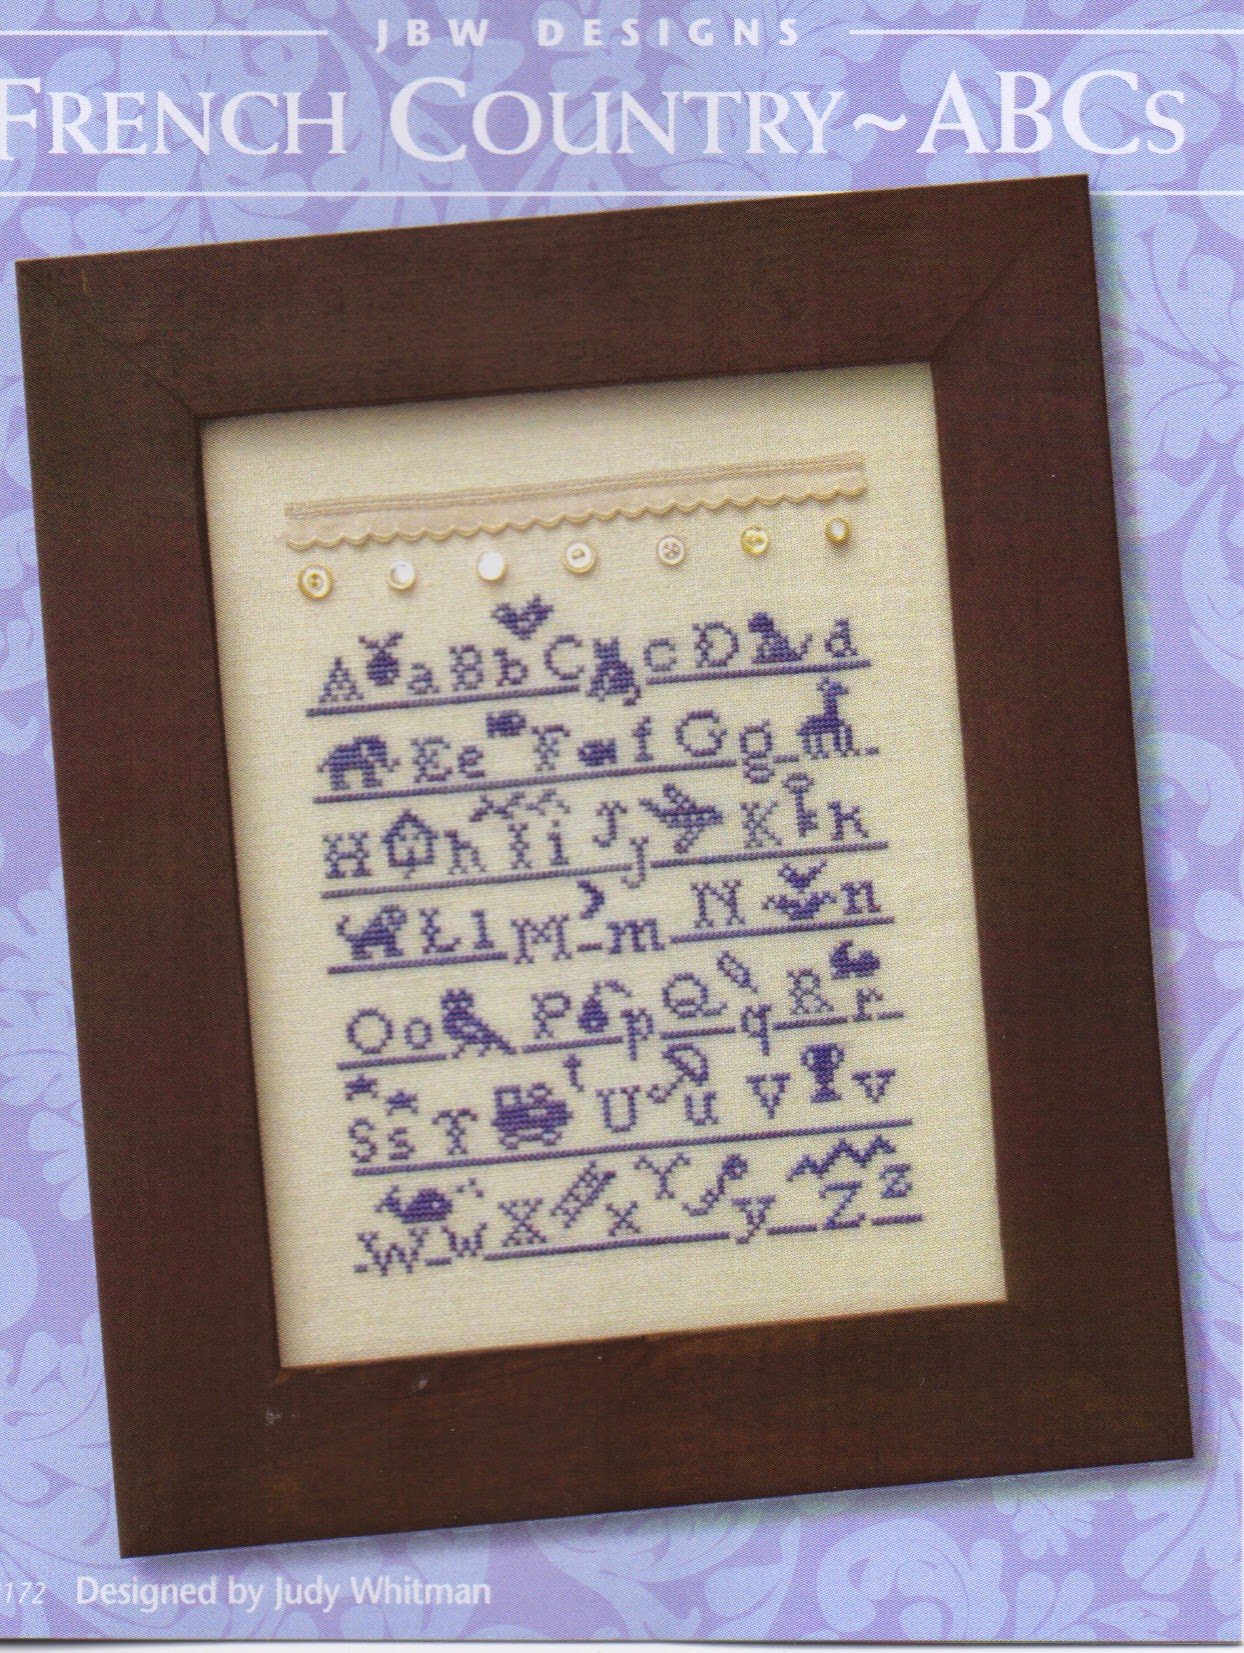 JBW DESIGNS
FRENCH COUNTRY~ABCS
A a B b C c D d
E e F f G g
H h I i J j K k
L l M m N n
O o P p Q q R r
S s T t U u V v
W w X x Y y Z z
172 Designed by Judy Whitman